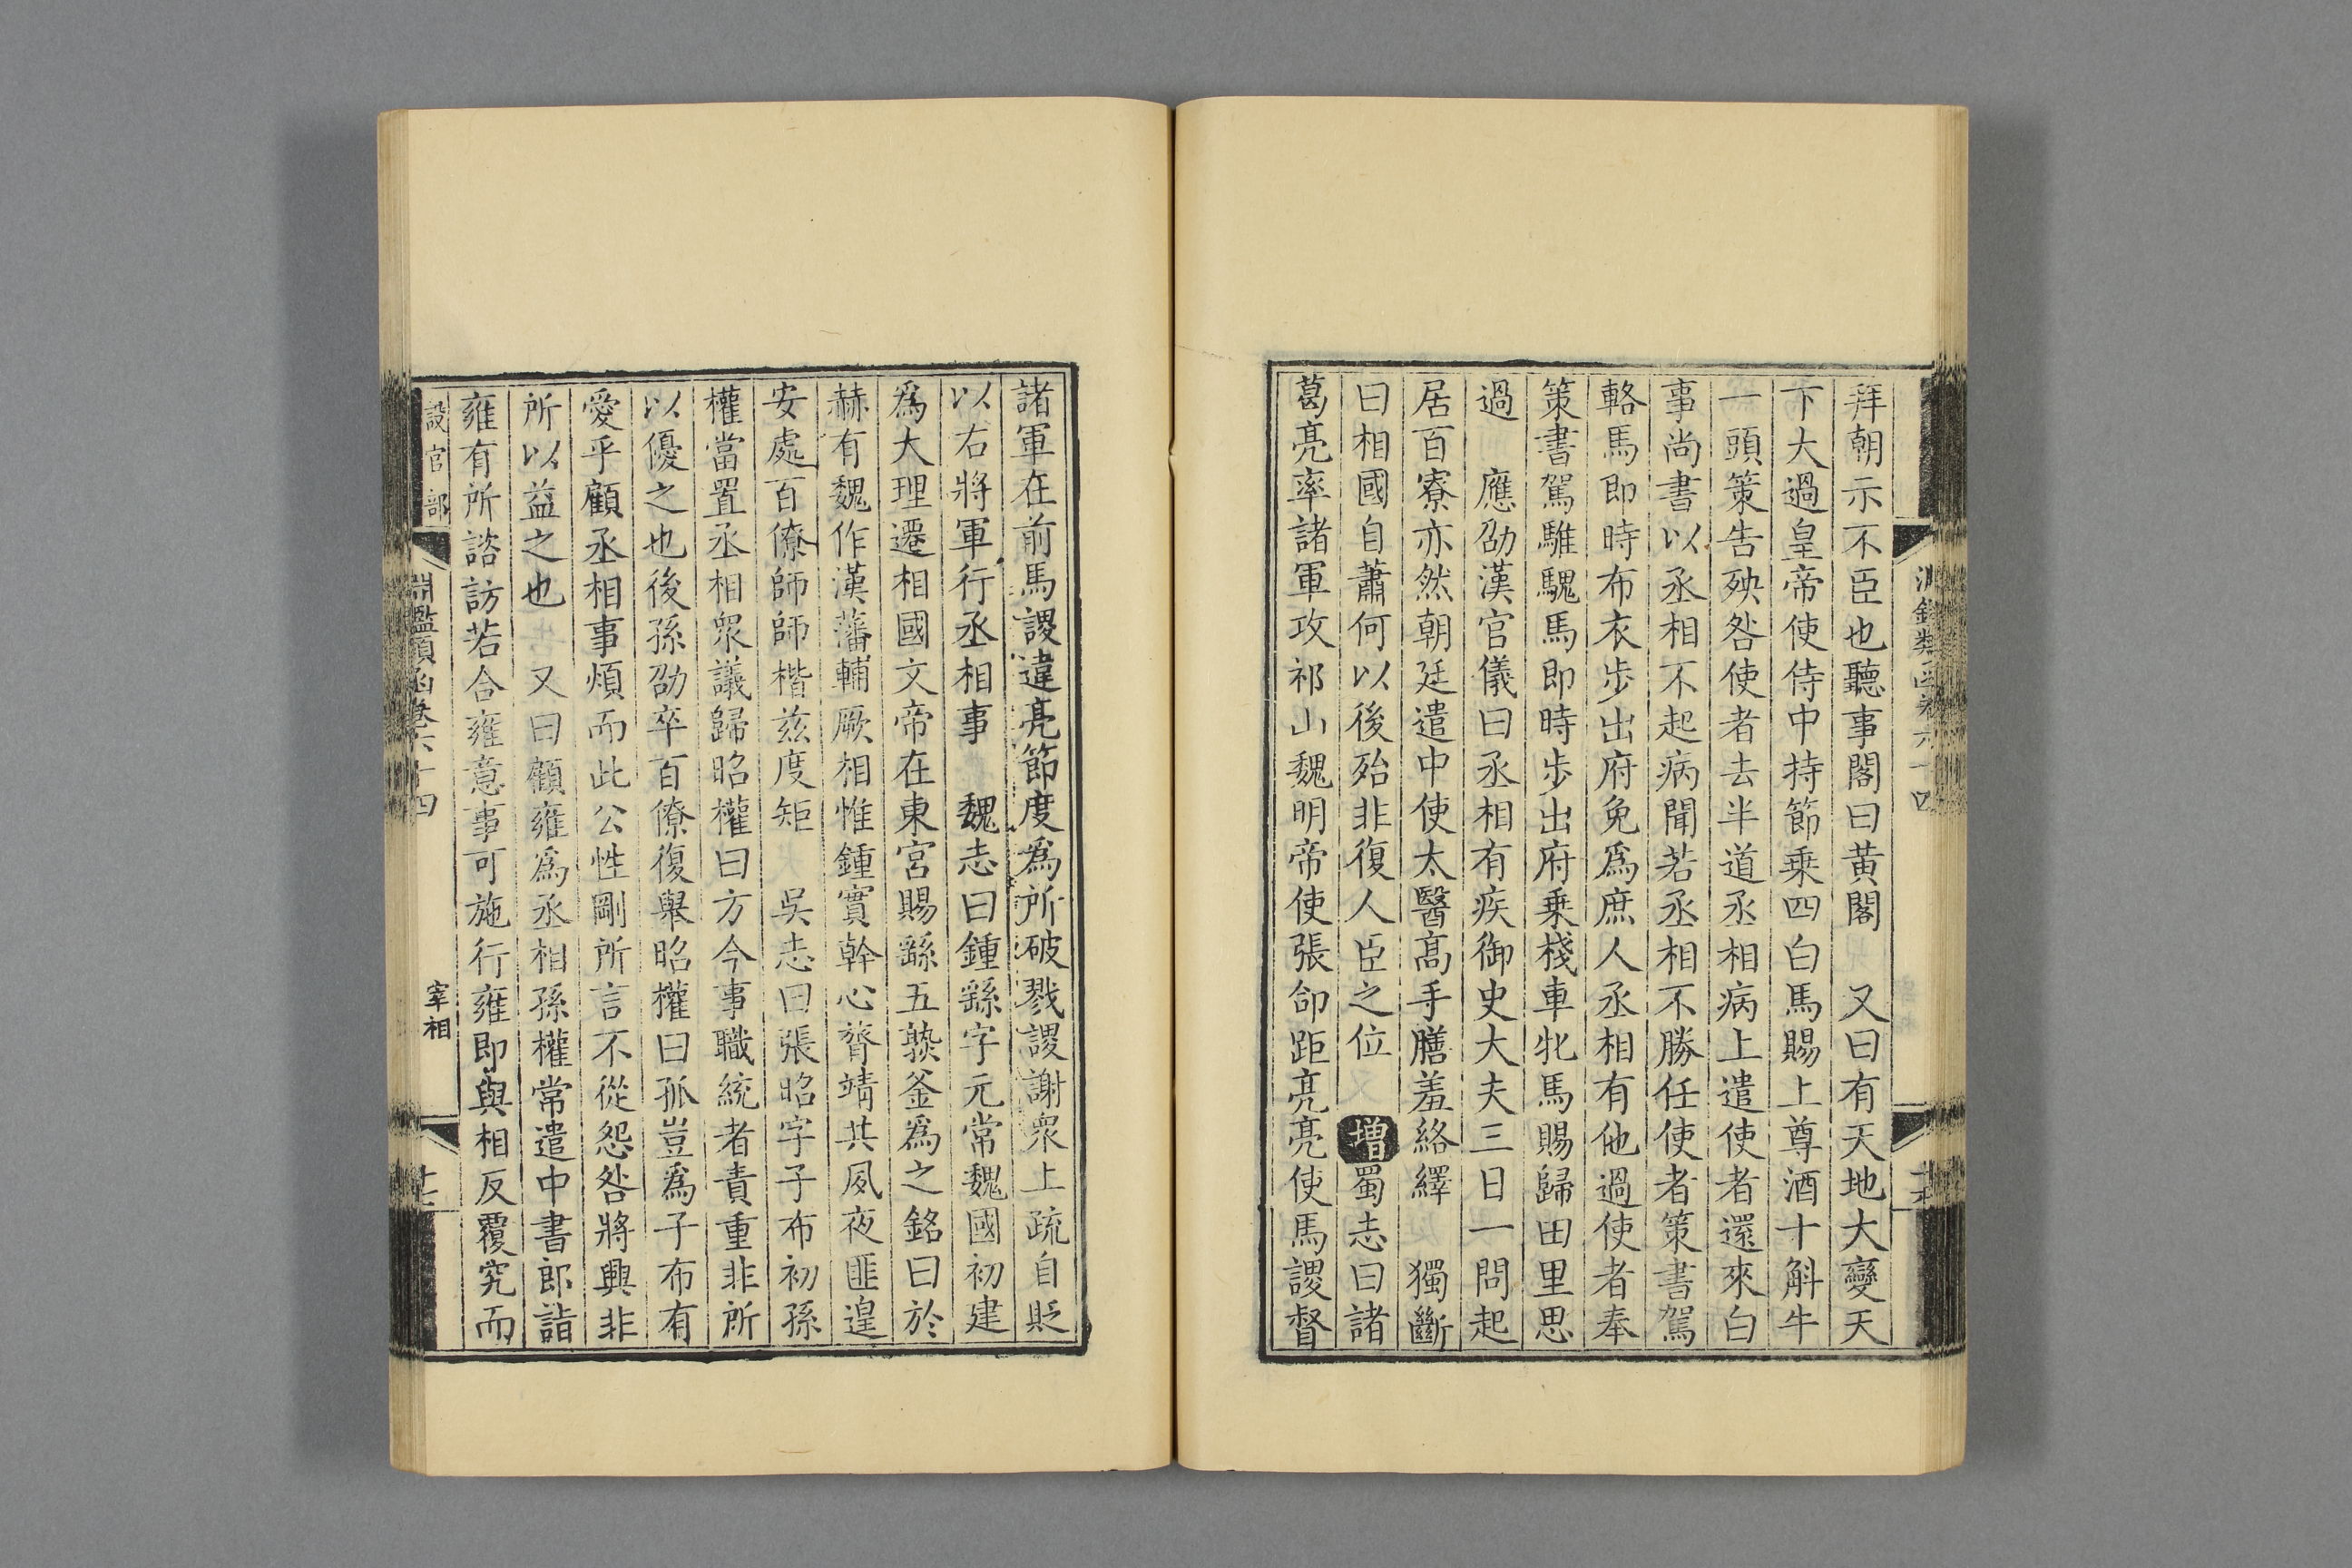 拜朝示不臣也聽事閣曰黃閣 又曰有天地大變天
下大過皇帝使侍中持節乗四白馬賜上尊酒十斛牛
一頭策告殃咎使者去半道丞相病上遣使者還來白
事尚書以丞相不起病聞若丞相不勝任使者策書駕
輅馬即時布衣步出府免爲庶人丞相有他過使者奉
策書駕騅騩馬即時步出府乗棧車牝馬賜歸田里思
過 應劭漢官儀曰丞相有疾御史大夫三日一問起
居百寮亦然朝廷遣中使太醫高手膳羞絡繹 獨斷
曰相國自蕭何以後殆非復人臣之位 增蜀志曰諸
葛亮率諸軍攻祁山魏明帝使張郃距亮亮使馬謖督
諸軍在前馬謖違亮節度爲所破戮謖謝衆上疏自貶
以右將軍行丞相事 魏志曰鍾繇字元常魏國初建
爲大理遷相國文帝在東宮賜繇五熟釜爲之銘曰於
赫有魏作漢藩輔厥相惟鍾實幹心膂靖共夙夜匪遑
安處百僚師師楷茲度矩 吳志曰張昭字子布初孫
權當置丞相衆議歸昭權曰方今事職統者責重非所
以優之也後孫劭卒百僚復舉昭權曰孤豈爲子布有
愛乎顧丞相事煩而此公性剛所言不從怨咎將興非
所以益之也 又曰顧雍爲丞相孫權常遣中書郎詣
雍有所諮訪若合雍意事可施行雍即與相反覆究而
設官部
淵鑑類函卷六十四
宰相
十七